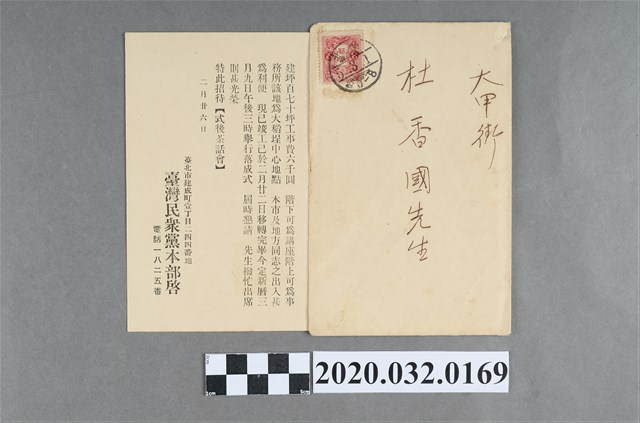 大甲街
杜香國先生
建坪百七十坪工事費六千圓　階下可為講座階上可為事
務所該地為大稻埕中心地點　本市及地方同志之出入甚
為利便　現已竣工已於二月廿二日移轉完畢今定新曆三
月九日午後三時舉行落成式　屆時懇請　先生撥忙出席
則甚光榮
特此招待【式後茶話會】
二月廿六日
臺北市建成町壹丁目二四四番地
臺灣民衆黨本部啓
電話一八二五番
2020.032.0169